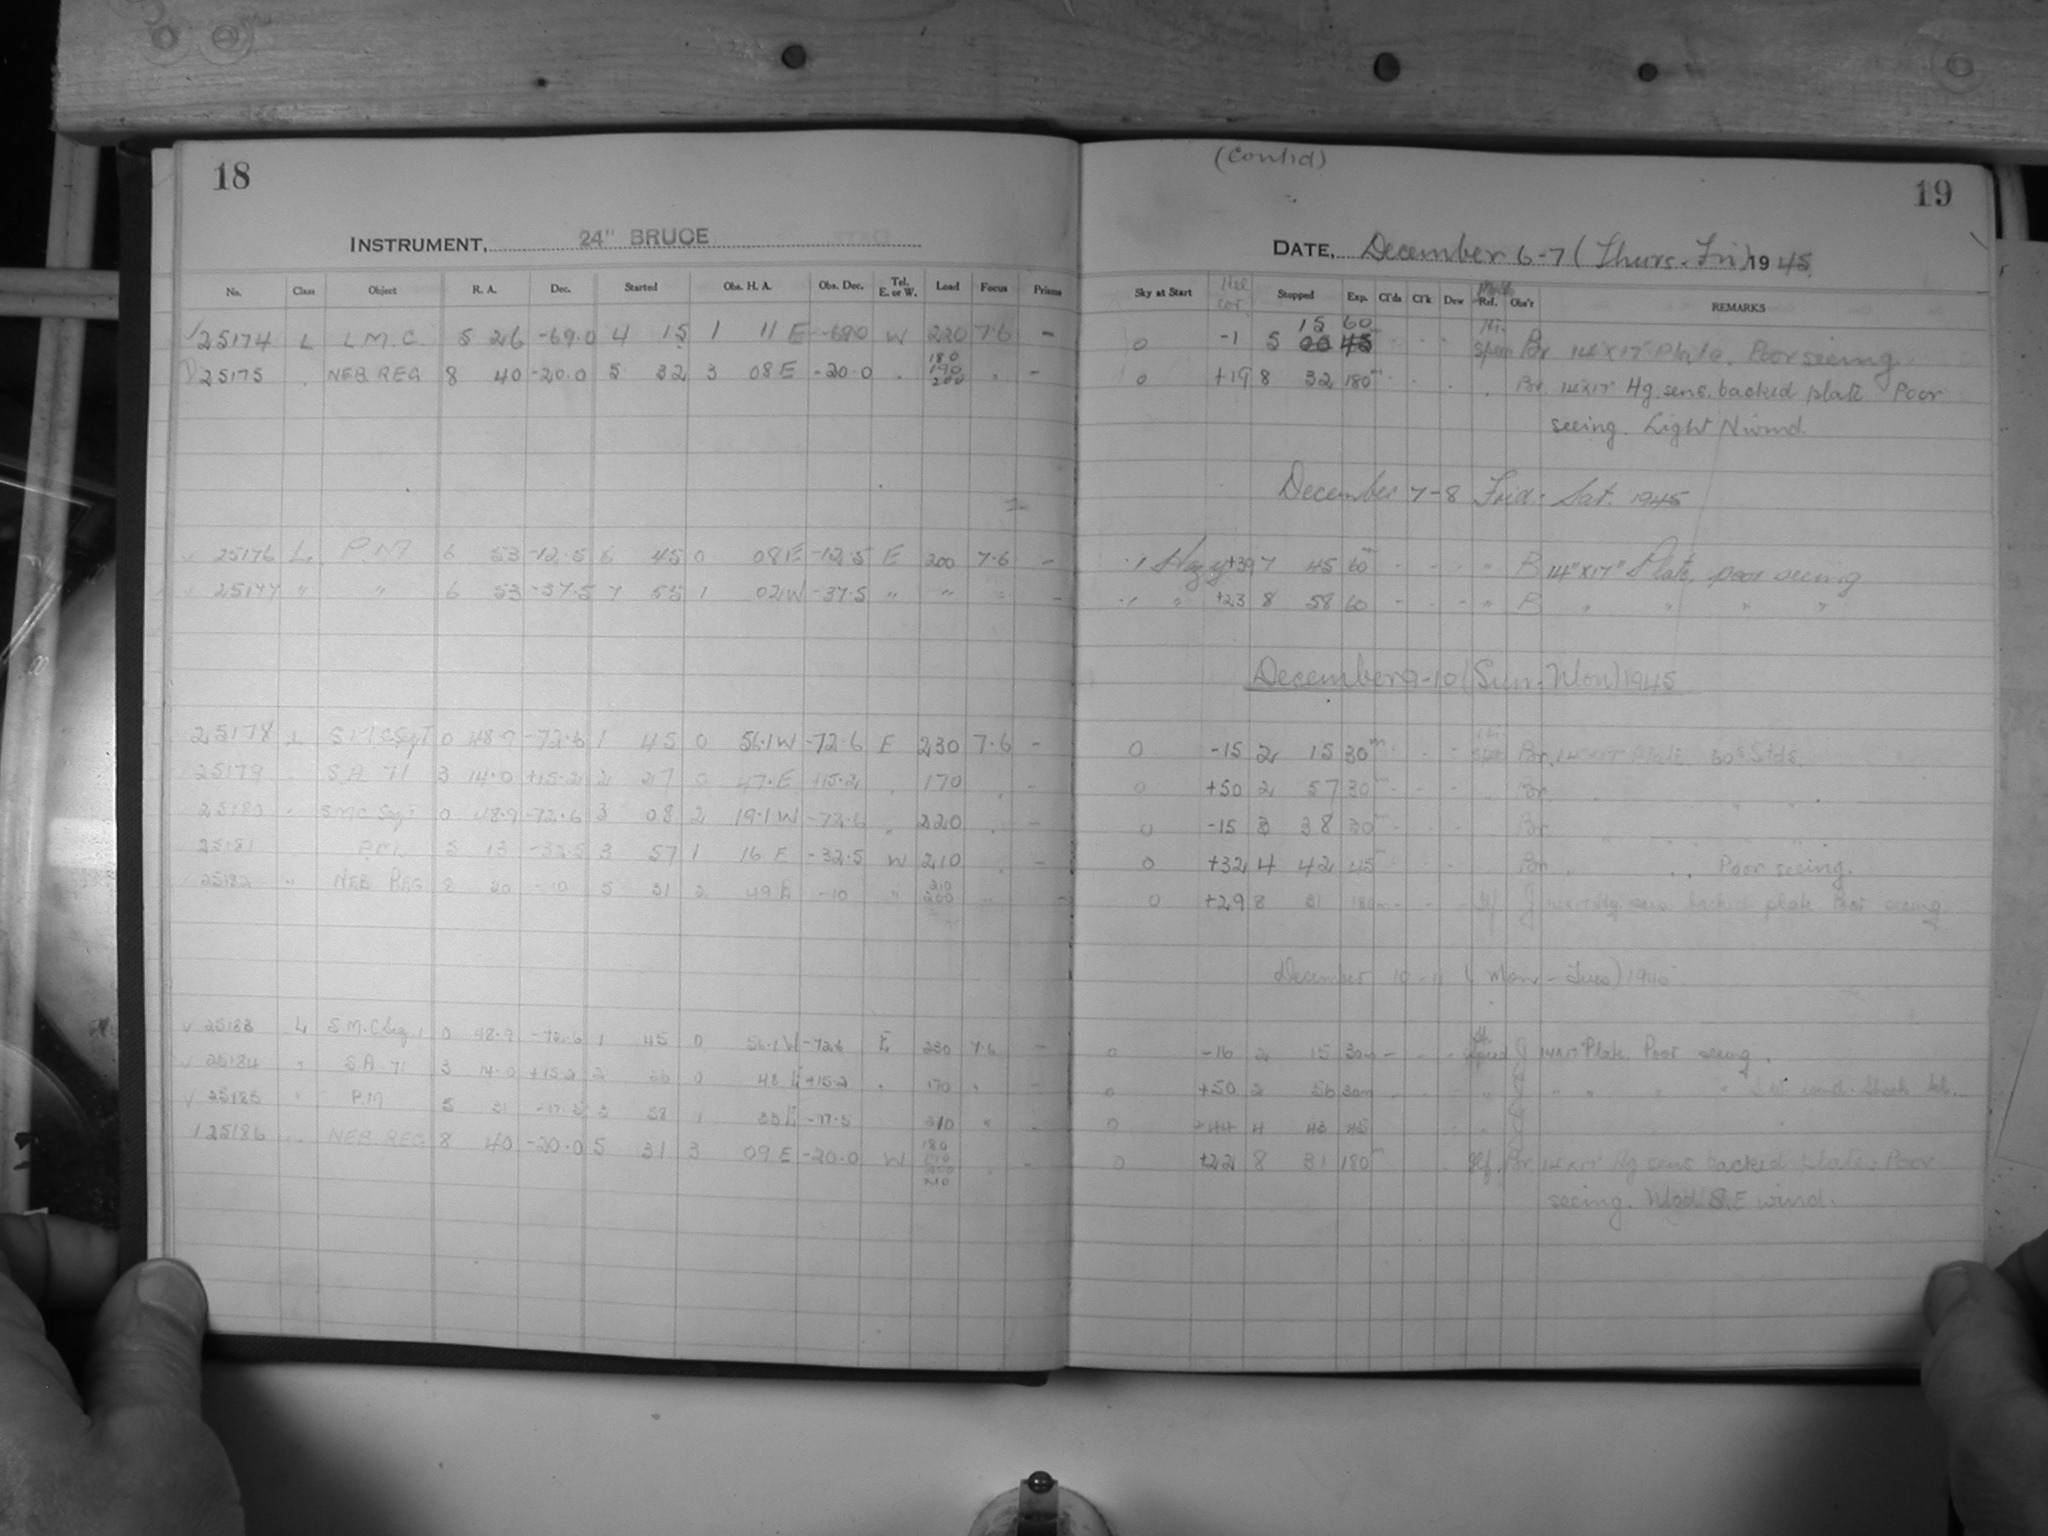 18
INSTRUMENT, 24" BRUCE
No. Class Object R. A. Dec. Started Obs. H. A. Obs. Dec. Tel. E. or W. Load Focus Prisms
25174 L L.M.C. 5 26 -69.0 4 15 1 11 E -69.0 W 220 7.6 -
25175 . NEB. REG 8 40 -20.0 5 32 3 08 E -20.0 . 180 190 200 . -
25176 L. P.M 6 53 -12.5 6 45 0 08 E -12.5 E 200 7.6 -
25177 " " 6 53 -37.5 7 55 1 02 W -37.5 " " " -
25178 L S M C Sq 1 0 48.9 -72.6 1 45 0 56.1 W -72.6 E 230 7.6 -
25179 . S.A. 71 3 14.0 +15.2 2 27 0 47. E +15.2 . 170 . -
25180 . SMC Sq 1 0 48.9 -72.6 3 08 2 19.1 W -72.6 " 220 . -
25181 P.M. 5 13 -32.5 3 57 1 16 E -32.5 W 210 . -
25182 " NEB REG 8 20 -10 5 31 2 49 E -10 " 210 200 " -
25183 L S.M.C Sq. 1 0 48.9 -72.6 1 45 0 56.1 W -72.6 E 230 7.6 -
25184 " S A 71 3 14.0 +15.2 2 26 0 48 E +15.2 . 170 . -
25185 " P.M 5 31 -17.5 3 58 1 33 E -17.5 210 " -
25186 . NEB. REG 8 40 -20.0 5 31 3 09 E -20.0 W 180 190 200 210 . -
(Contd)
19
DATE, December 6-7 (Thurs-Fri) 1945
Sky at Start Stopped Exp. Cl'ds Cl'k Dew Ref. Obs'r REMARKS
15 60
0 -1 5 20 45 Br 14"x17" Plate. Poor seeing
0 +19 8 32 180m . Br. 14"x17" Hg. sens. backed plate Poor
seeing. Light N wind.
December 7-8 Frid-Sat. 1945
.1 Hazy +39 7 45 60m - - - " B 14"x17" Plate, poor seeing
.1 " +23 8 58 60 - - - " B " " " "
December 9-10 (Sun-Mon) 1945
0 -15 2 15 30m Br. 14"x17" Plate 60s Stds.
0 +50 2 57 30m Br. " " "
0 -15 3 38 30m Br.
0 +32 4 42 45m Br. " Poor seeing.
0 +29 8 31 180m - J 14x17 Hg sens backed plate Poor seeing
December 10-11 (Mon-Tues) 1945
0 -16 2 15 30m - - - speed J 14x17 Plate. Poor seeing.
0 +50 2 56 30m " J " " " " S.W. wind.
0 +44 4 43 45 J
0 +22 8 31 180m Br 14"x17" Hg sens backed plate. Poor
seeing. Mod S.E wind.